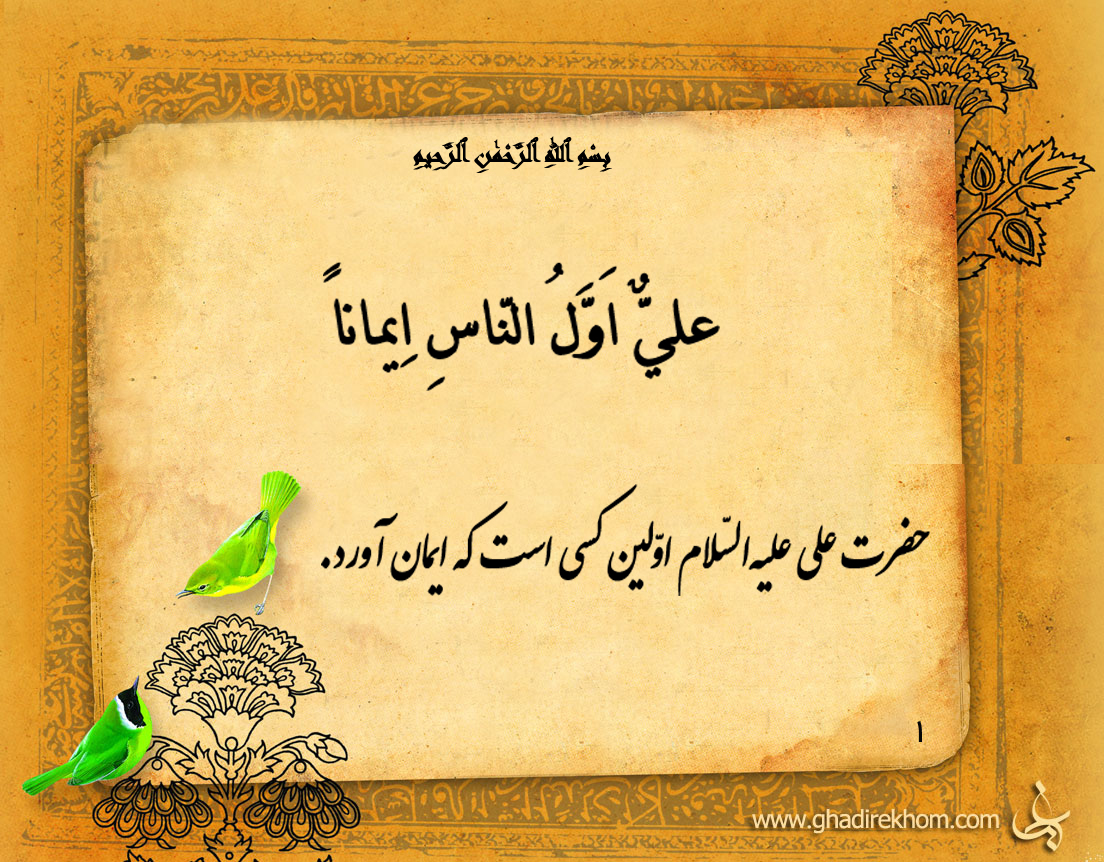 بِسْمِ اللهِ الرَّحْمٰنِ الرَّحِيمِ
عليٌّ اَوَّلُ النّاسِ اِيماناً
حضرت علی علیه‌السّلام اوّلین کسی است که ایمان آورد.
۱
www.ghadirekhom.com